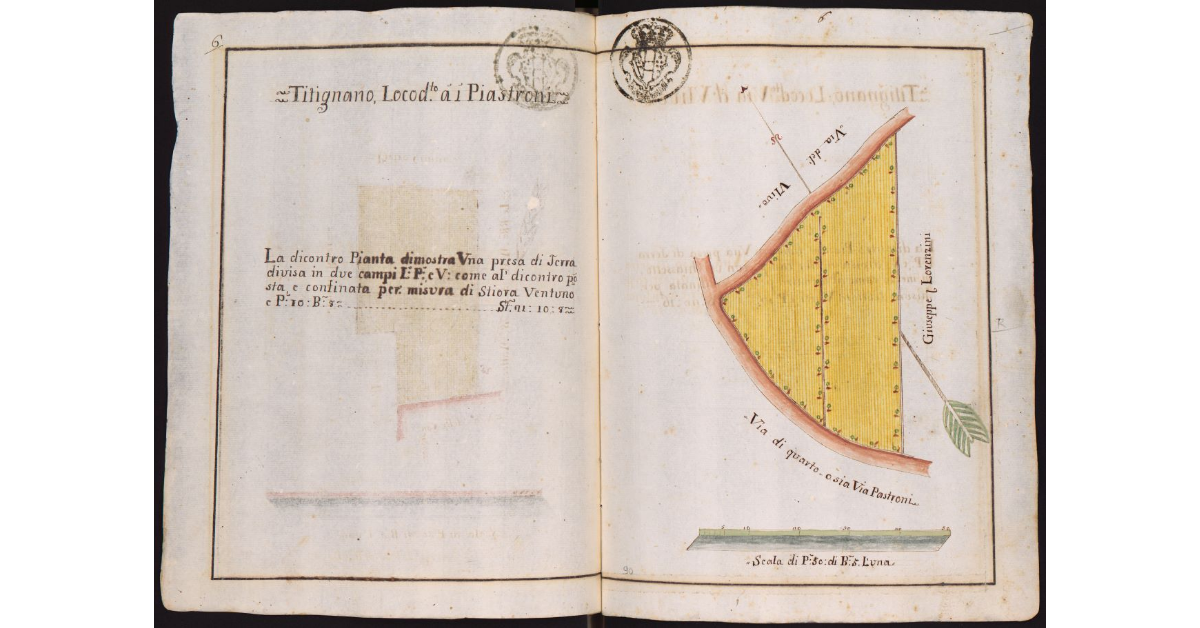 6
Titignano, Locod.to á i Piastroni
La dicontro Pianta dimostra Vna presa di Terra
divisa in due campi L. P. e V: come al' dicontro po
sta, e confinata per misura di Stiora Ventuno
e P.e 10: B.a 8
St. 21: 10: 8
6
Via del
Vlivo.
Giuseppe Lorenzini
Via di quarto o sia Via Pastroni
Scala di P.e 50: di B.a 5. L'vna
90